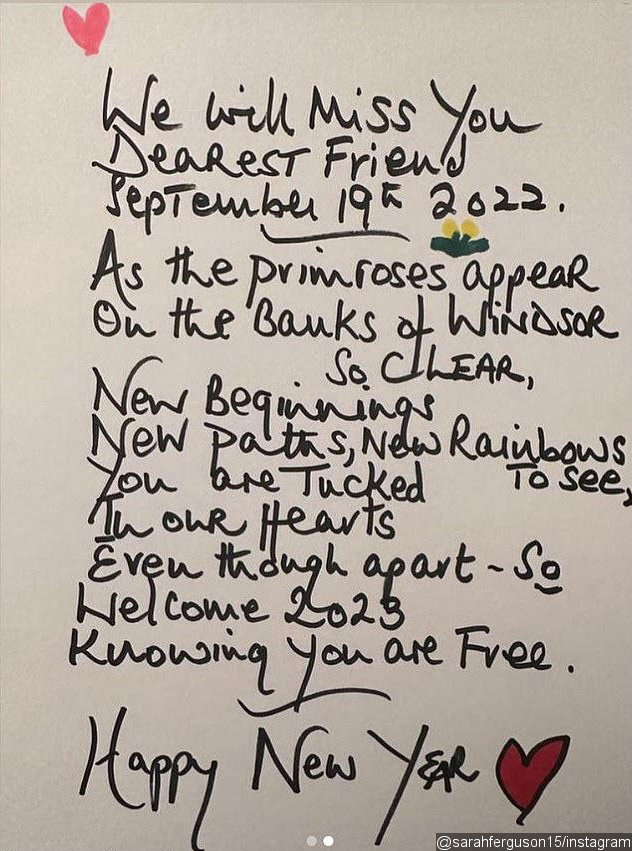 We will Miss You
Dearest Friend
September 19th 2022.
As the primroses appear
On the Banks of WINDSOR
So CLEAR,
New Beginnings
New paths, New Rainbows
To see,
You are Tucked
In our Hearts
Even though apart - So
Welcome 2023
Knowing You are Free.
Happy New Year
@sarahferguson15/instagram